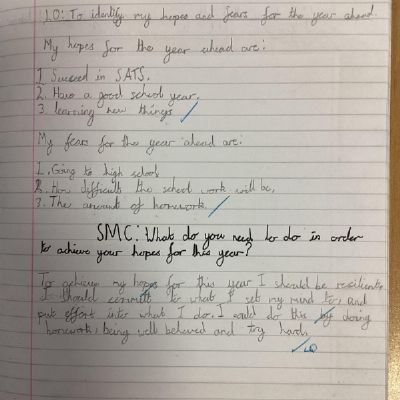 LO: To identify my hopes and fears for the year ahead.
My hopes for the year ahead are:
1. Succeed in SATS.
2. Have a good school year.
3. learning new things
My fears for the year ahead are:
1. Going to high school
2. How difficult the school work will be,
3. The amount of homework.
SMC: What do you need to do in order
to achieve your hopes for this year?
To achieve my hopes for this year I should be resilient.
I should commit to what I set my mind to, and
put effort into what I do. I could do this by doing
homework, being well behaved and try hard.